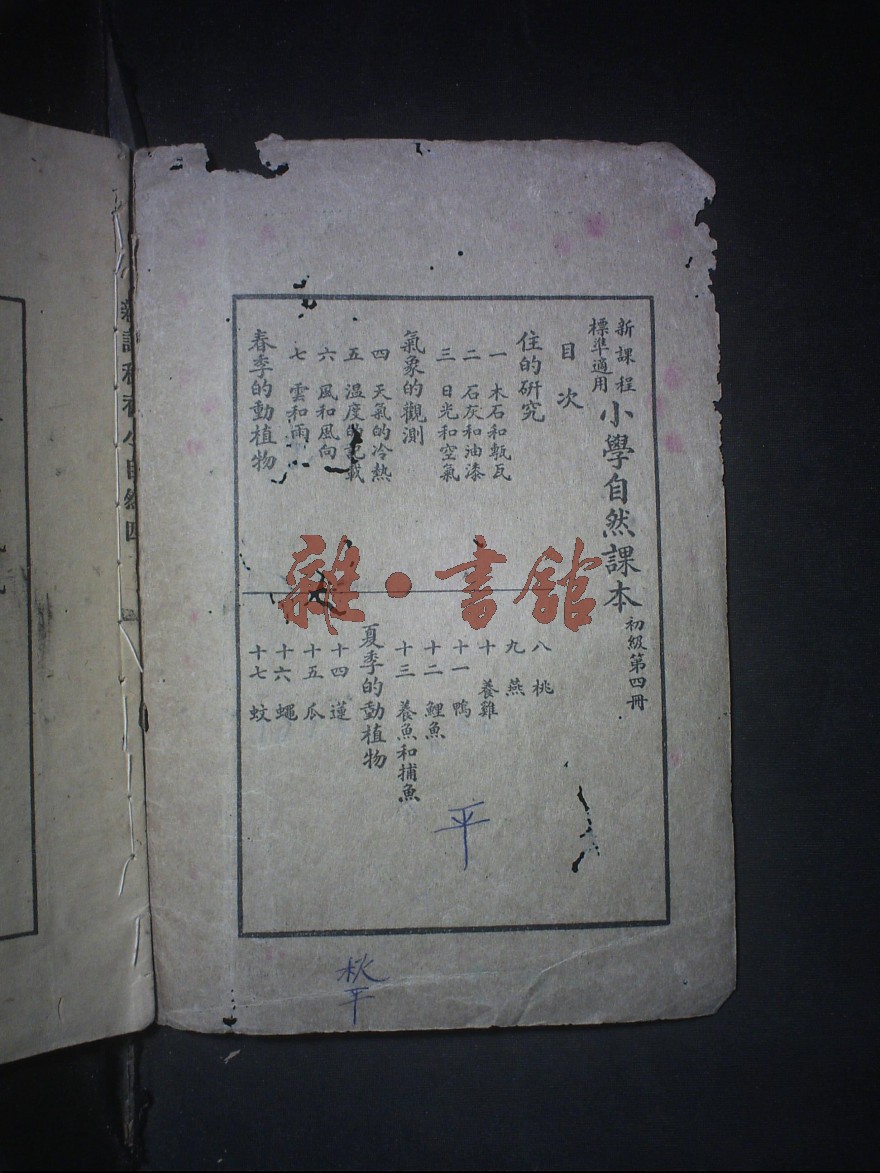 新課程
標準適用
小學自然課本
初級第四冊
目次
住的研究
一 木石和甎瓦
二 石灰和油漆
三 日光和空氣
氣象的觀測
四 天氣的冷熱
五 溫度的記載
六 風和風向
七 雲和雨
春季的動植物
八 桃
九 燕
十 養雞
十一 鴨
十二 鯉魚
十三 養魚和捕魚
夏季的動植物
十四 蓮
十五 瓜
十六 蠅
十七 蚊
平
秋平
雜·書館
小自然四